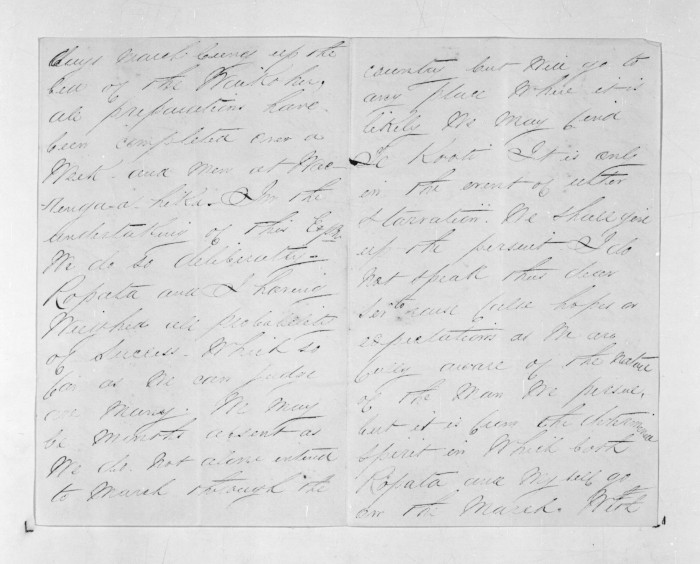 days march brings up the
bed of the Waikohu,
all preparations have
been completed over a
Week and men at Mau
-nenga-a-hiki. In the
Undertaking of this Exp.
We do so deliberately.
Ropata and I having
Weighed all probabilities
of Success. Which so
far as We can judge
are Many. We May
be Months absent as
We do not alone intend
to March through the
country but Will go to
any place Where it is
likely We May find
Te Kooti. It is only
in the event of utter
Starvation. We shall give
up the pursuit I do
not speak this
to cause false hopes or
expectations as We are
fully aware of the nature
of the Man We pursue,
but it is from the determined
spirit in Which both
Ropata and Myself go
on the March. With